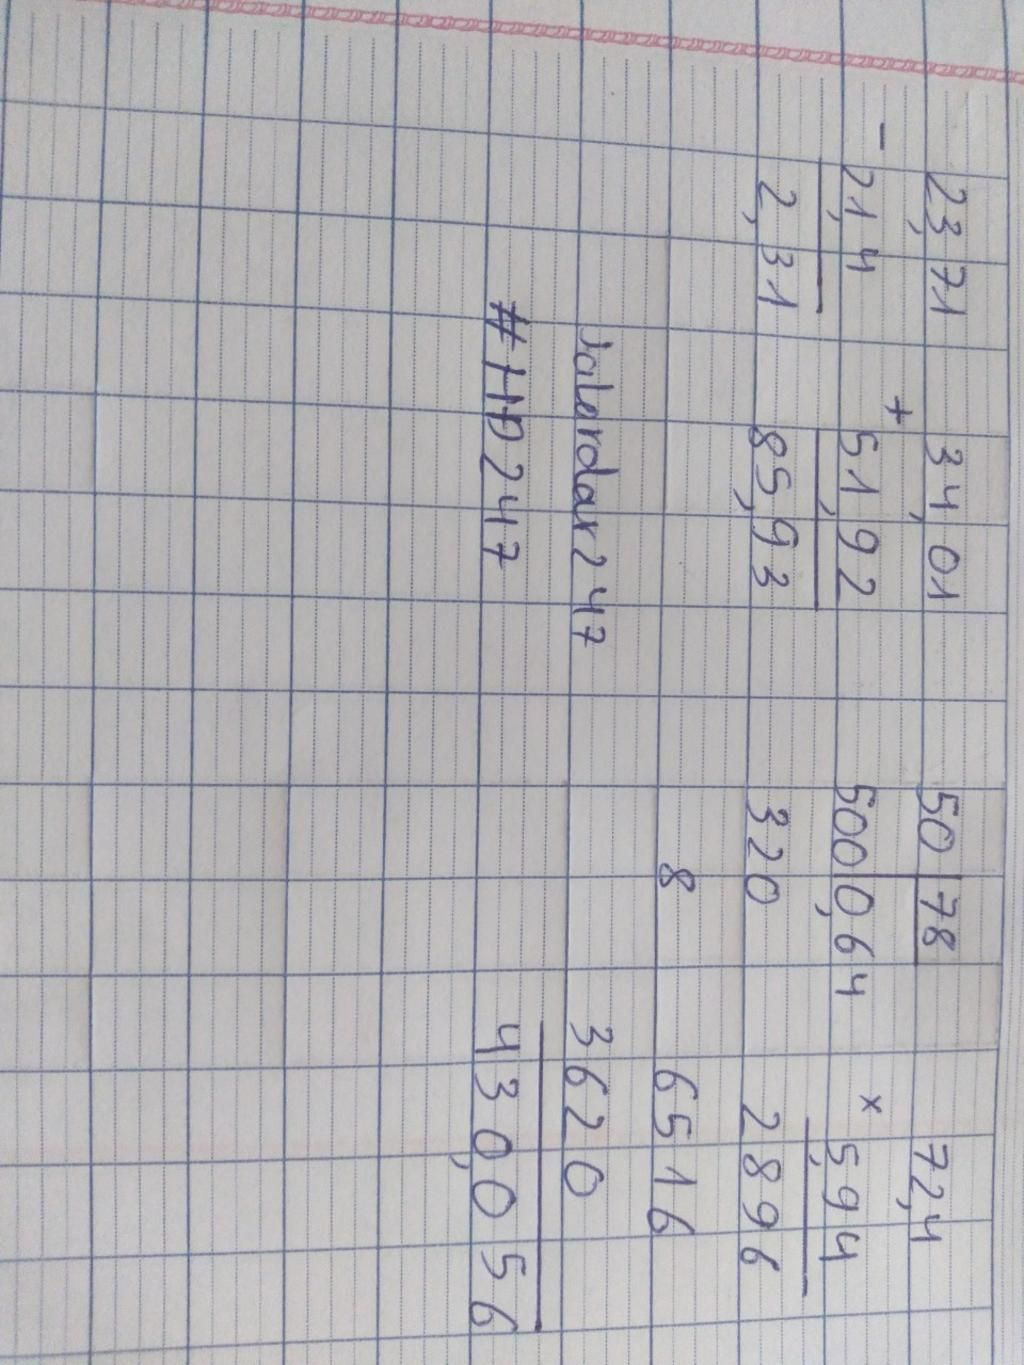 23,71 34,01 50 78 72,4
- 21,4 + 51,92 500 0,64 × 5,94
2,31 85,93 320 2896
8 6516
Jalerdar247 3620
#HD247 430,056